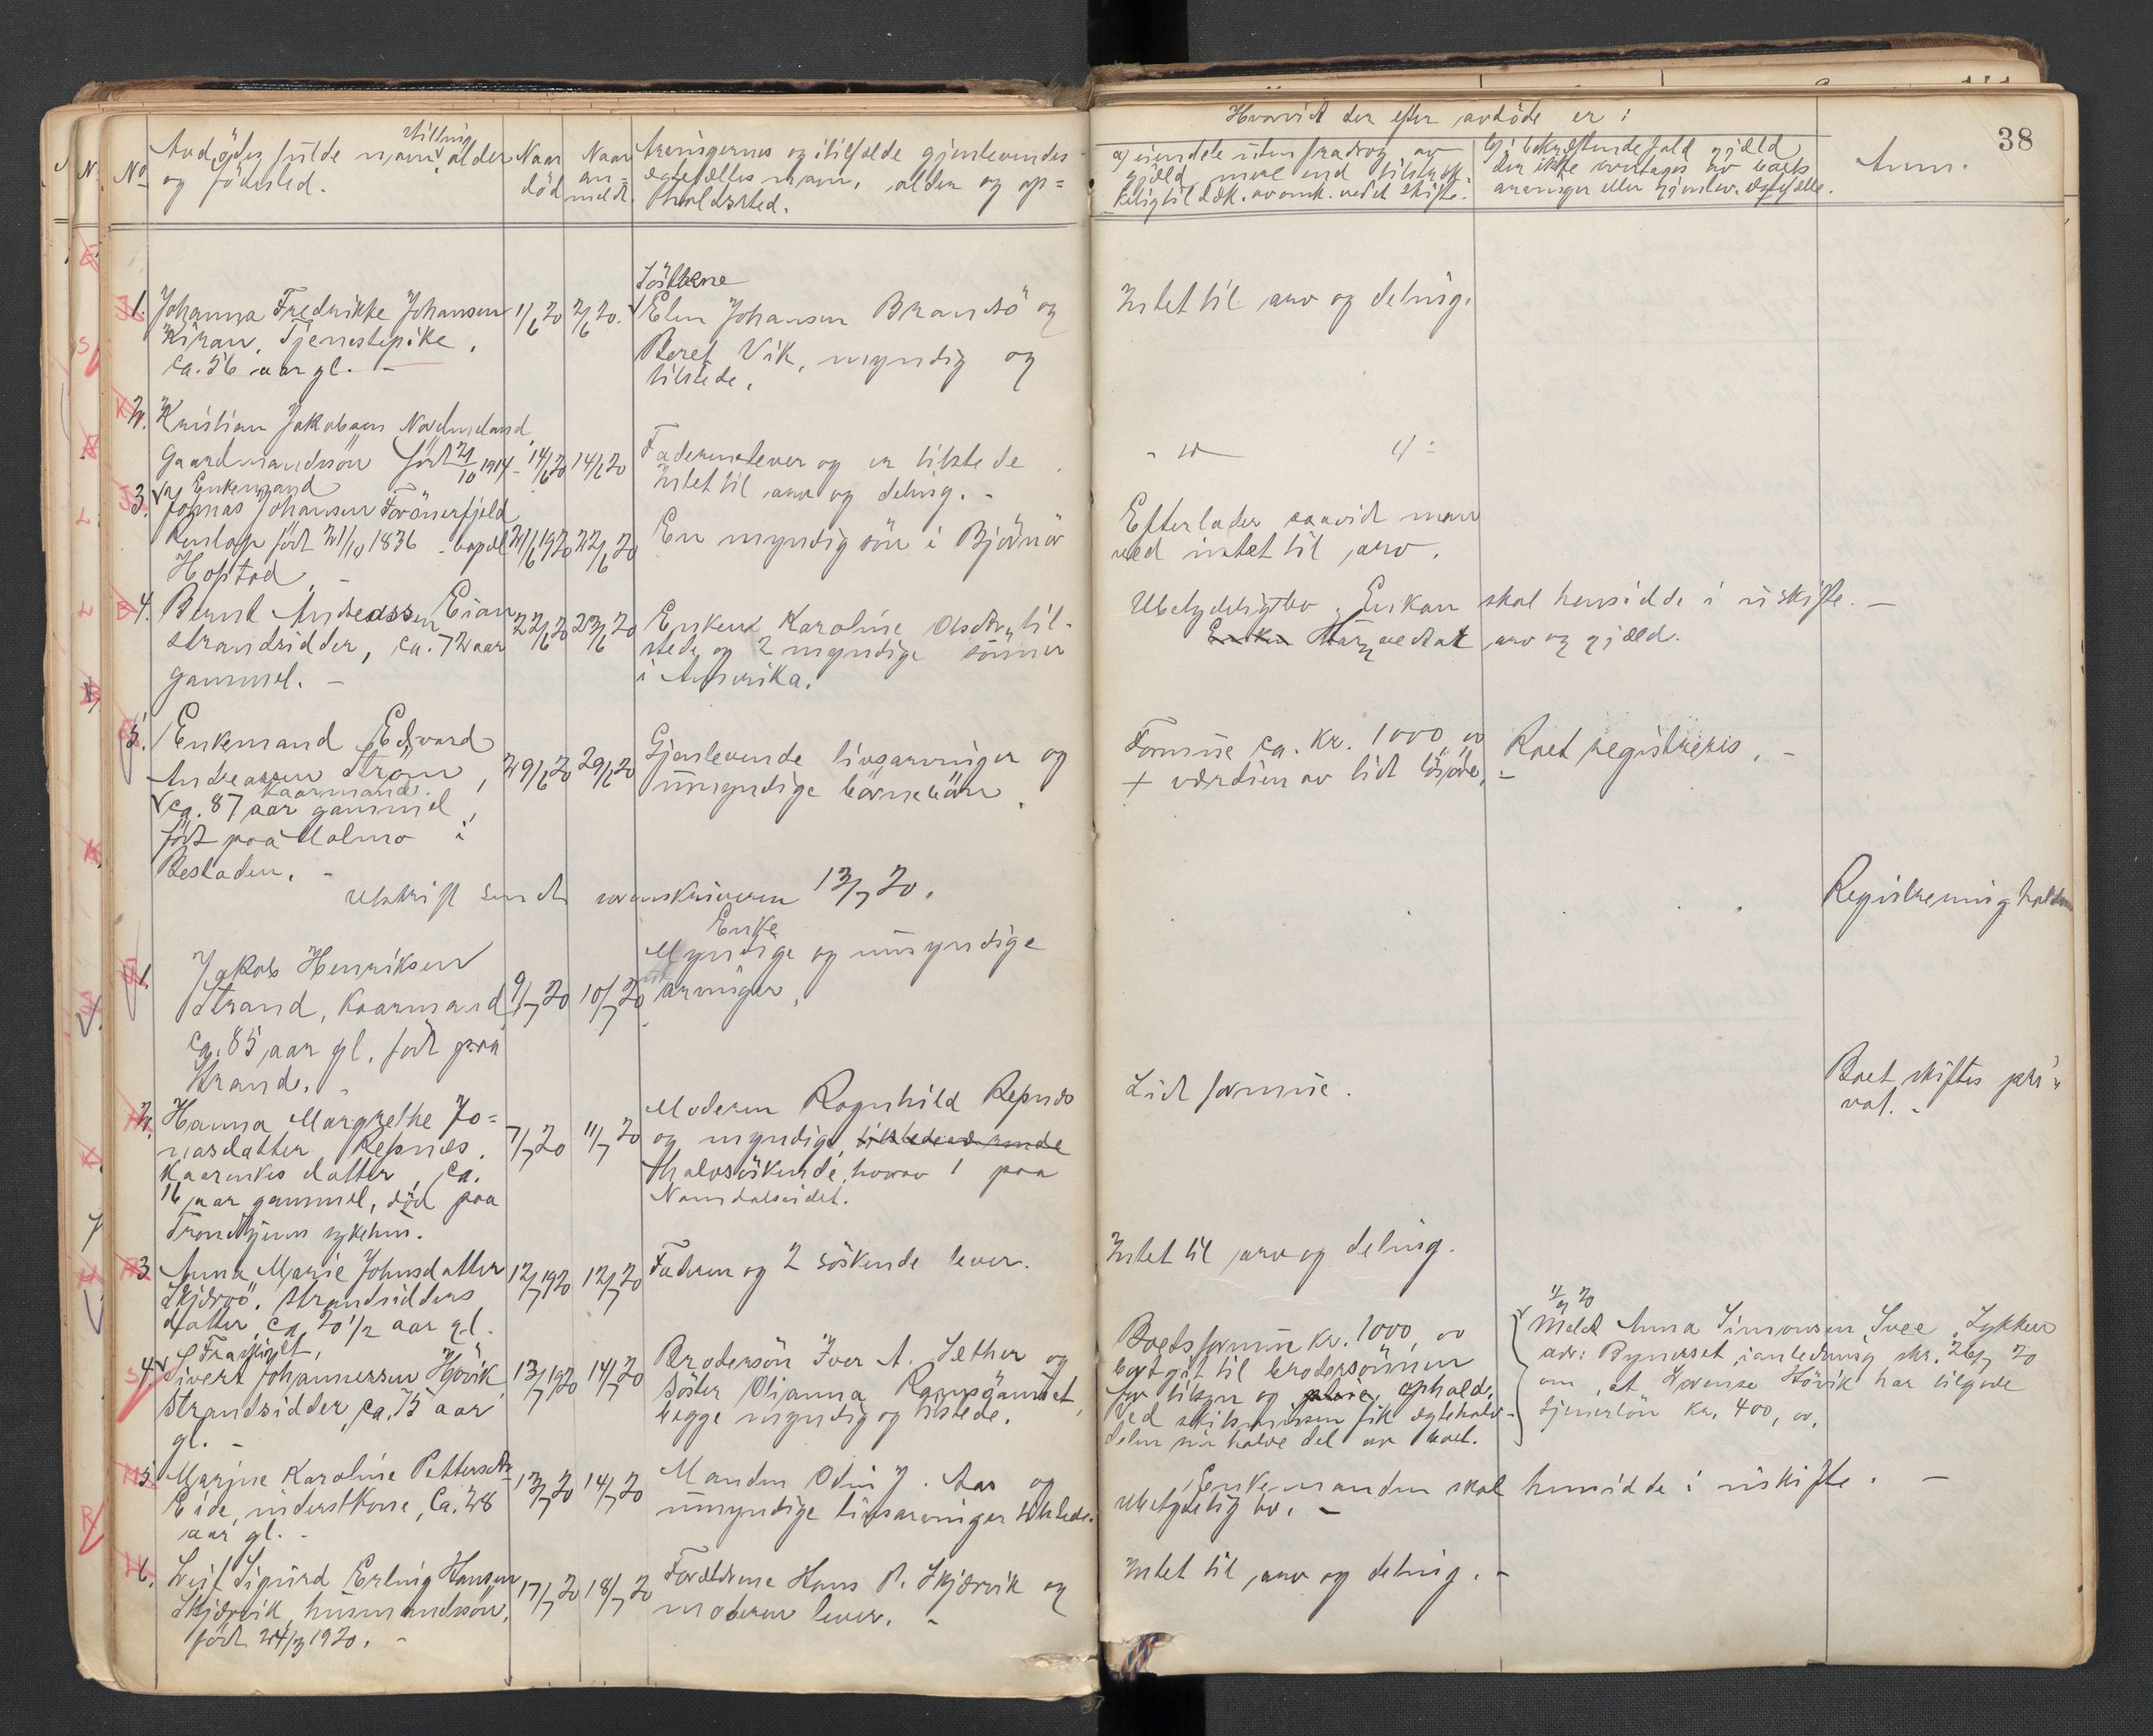 38
No
Avdödes fulde navn, stilling, alder
og födested.
Naar
död
Naar
an=
meldt.
Arvingernes og i tilfælde gjenlevendes
egtefælles navn, alder og op=
holdssted.
Hvorvidt der efter avdöde er:
a) eiendele uten fradrag av
gjæld mere end tilstræk-
kelig til dæk. av omk. ved et skifte.
b) i bekræftende fald gjæld
der ikke overtages av boets
arvinger eller gjenlev. egtefælle.
Anm.
1. Johanna Fredrikke Johansen
Kiran, Tjenestepike,
ca. 56 aar gl. -
1/6 20
2/6 20.
Söstrene
Elen Johansen Brandsö og
Beret Vik, myndig og
tilstede.
Intet til arv og deling.
2. Kristian Jakobsen Nordmeland,
Gaardmandssön född 21/10 1914 -
14/6 20
14/6 20
Faderen lever og er tilstede
Intet til arv og deling. -
- " -
3. Enkemand
Johnas Johansen
født 21/10 1836 -
Hopstad. -
21/6 1920
22/6 20
En myndig sön i Bjørnör
Efterlader saavidt man
ved intet til arv.
4. Bernt Andreassen Eian
strandsidder, ca. 72 aar
gammel. -
22/6 20
23/6 20
Enken Karoline Olsdtr. til-
stede og 2 myndige sönner
i Amerika.
Ubetydeligt bo. Enken skal hensidde i uskifte. -
Enken Har vedtat arv og gjæld.
5. Enkemand Edvard
Andreassen Ström,
Kaarmand.
ca. 87 aar gammel,
född paa Malmo i
Bestaden. -
29/6 20
29/6 20
Gjenlevende livsarvinger og
umyndige börnebörn.
Formue ca. Kr. 1000,00
+ værdien av lidt lösöre. -
Boet registreres. -
Utskrift sendt sorenskriveren 13/7 20.
Registrering holdes
1. Jakob Henriksen
Strand, Kaarmand
ca. 85 aar gl. född paa
Strand. -
9/7 20
10/7 20
Enke
Myndige og umyndige
arvinger.
2. Hanna Margrethe Jo=
nasdatter Repnes.
Kaarenkes datter, ca.
16 aar gammel, död paa
Trondhjems sykehus.
7/7 20
11/7 20
Moderen Ragnhild Repnes
og myndige, tilstedeværende
halvsöskende, hvorav 1 paa
Namdalseidet.
Lidt formue.
Boet skiftes pri=
vat. -
3. Anna Marie Johnsdatter
Skjærvö. strandsidders
datter, ca. 20 1/2 aar gl.
12/7 1920
12/7 20
Faderen og 2 söskende lever.
Intet til arv og deling.
4. Fraskilt,
Sivert Johannessen Hövik
strandsidder, ca. 75 aar
gl. -
13/7 1920
14/7 20
Brodersön Iver A. Sæther og
söster Olianna Ramsgaunet,
begge myndig og tilstede.
Boets formue kr. 1000,00
bortgit til brodersönnen
for tilsyn og pleie, ophold.
Ved skilsmissen fik egtehalv-
delen sin halve del av boet.
11/7 20
Meldt Anna Simonsen, Svee, Lykken
adr. Bynesset, i anledning skr. 26/7 20
om at Hövik har tilgode
tjenerlön Kr. 400,00.
5. Marine Karoline Pettersdtr.
Eide, inderstkone, ca. 48
aar gl. -
13/7 20
14/7 20
Manden Odin J. Aas og
umyndige livsarvinger tilstede.
Enkemanden skal hensidde i uskifte. -
Ubetydelig bo. -
6. Leif Sigurd Erling Hansen
Skjærvik, husmandssön,
född 24/3 1920. -
17/7 20
18/7 20
Forældrene Hans P. Skjærvik og
moderen lever. -
Intet til arv og deling. -